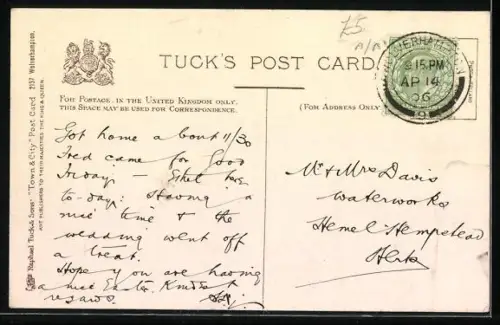 £5
TUCK'S POST CARD
FOR POSTAGE IN THE UNITED KINGDOM ONLY.
THIS SPACE MAY BE USED FOR CORRESPONDENCE.
(FOR ADDRESS ONLY.)
Raphael Tuck & Sons' "Town & City" Post Card 2157 Wolverhampton.
ART PUBLISHERS TO THEIR MAJESTIES THE KING & QUEEN.
WOLVERHAMPTON
9 15 PM
AP 14
06
Got home about 11/30
Fred came for Good
Friday - Ethel here
to-day: Having a
nice time & the
wedding went off
a treat.
Hope you are having
a nice Easter. Kindest
regards
Mr & Mrs Davis
Waterworks
Hemel Hempstead
Herts